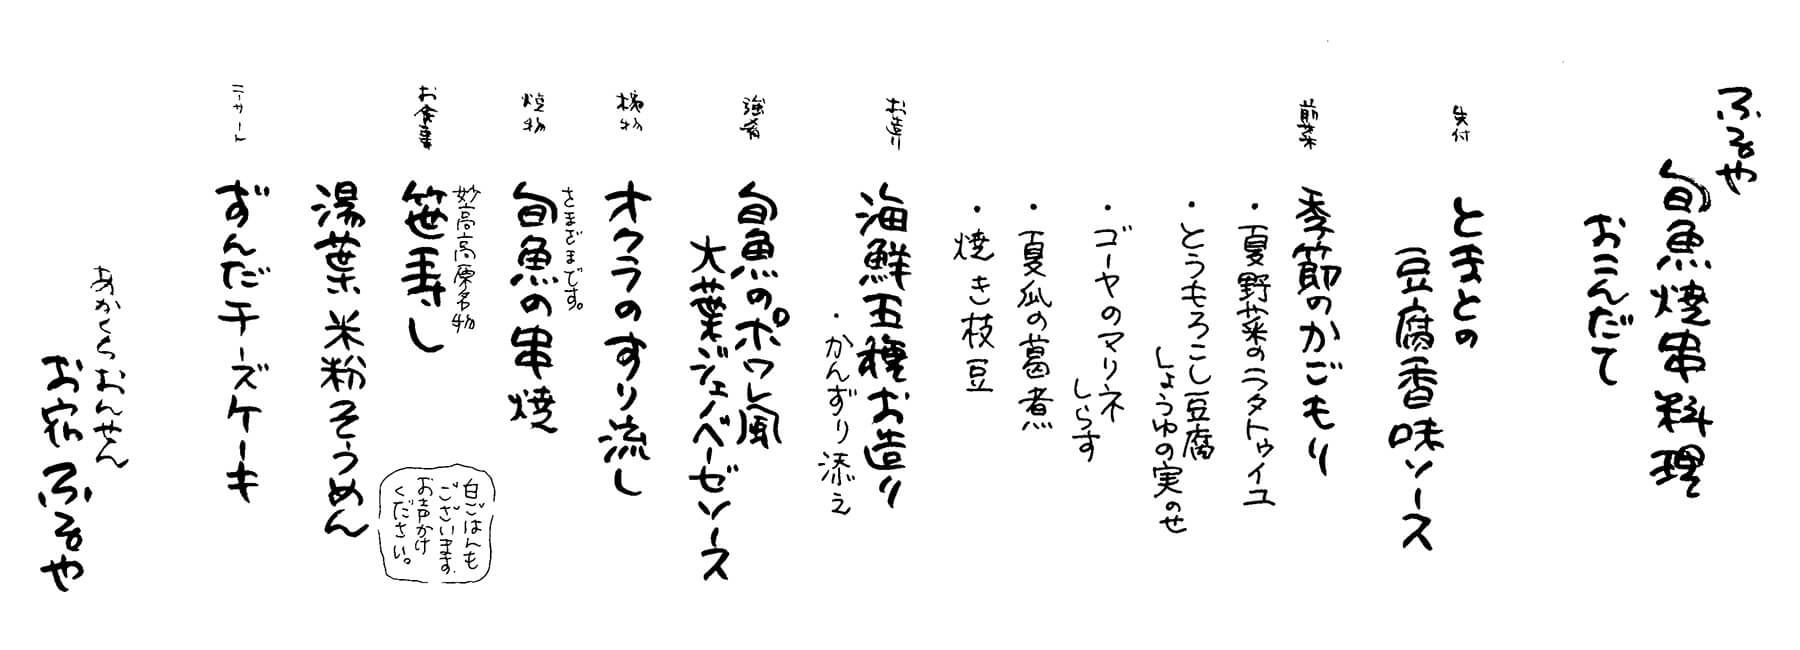 ふるや
旬魚焼串料理
おこんだて
先付
とまとの
豆腐香味ソース
前菜
季節のかごもり
・夏野菜のラタトゥイユ
・とうもろこし豆腐
しょうゆの実のせ
・ゴーヤのマリネ
しらす
・夏瓜の葛煮
・焼き枝豆
お造り
海鮮五種お造り
・かんずり添え
強肴
旬魚のポワレ風
大葉ジェノベーゼソース
椀物
オクラのすり流し
焼物
さまざまです。
旬魚の串焼
お食事
妙高高原名物
笹寿し
湯葉米粉そうめん
白ごはんも
ございます。
お声かけ
ください。
ニーサーん
ずんだチーズケーキ
あかくらおんせん
お宿ふるや